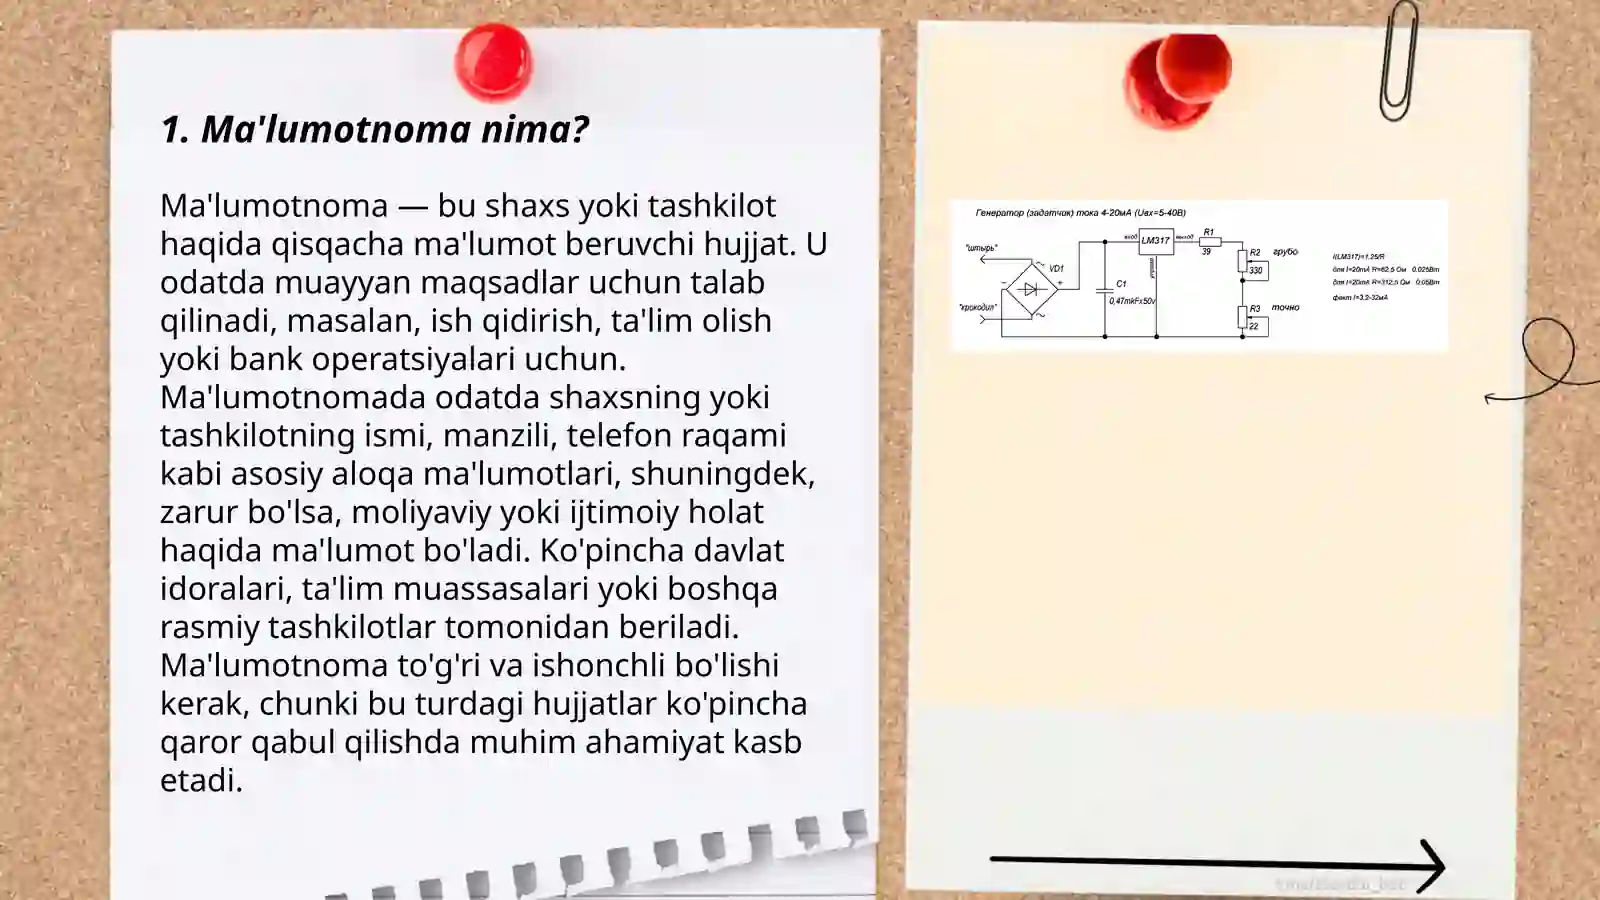 1. Ma'lumotnoma nima?
Ma'lumotnoma — bu shaxs yoki tashkilot
haqida qisqacha ma'lumot beruvchi hujjat. U
odatda muayyan maqsadlar uchun talab
qilinadi, masalan, ish qidirish, ta'lim olish
yoki bank operatsiyalari uchun.
Ma'lumotnomada odatda shaxsning yoki
tashkilotning ismi, manzili, telefon raqami
kabi asosiy aloqa ma'lumotlari, shuningdek,
zarur bo'lsa, moliyaviy yoki ijtimoiy holat
haqida ma'lumot bo'ladi. Ko'pincha davlat
idoralari, ta'lim muassasalari yoki boshqa
rasmiy tashkilotlar tomonidan beriladi.
Ma'lumotnoma to'g'ri va ishonchli bo'lishi
kerak, chunki bu turdagi hujjatlar ko'pincha
qaror qabul qilishda muhim ahamiyat kasb
etadi.
Генератор (задатчик) тока 4-20мА (Uвх=5-40В)
"штырь"
VD1
"крокодил"
C1
0,47mkFx50v
вход
LM317
выход
R1
39
R2
330
грубо
R3
22
точно
I(LM317)=1,25/R
для I=20mA R=62,5 Ом 0.025Вт
факт I=3,2-32мА